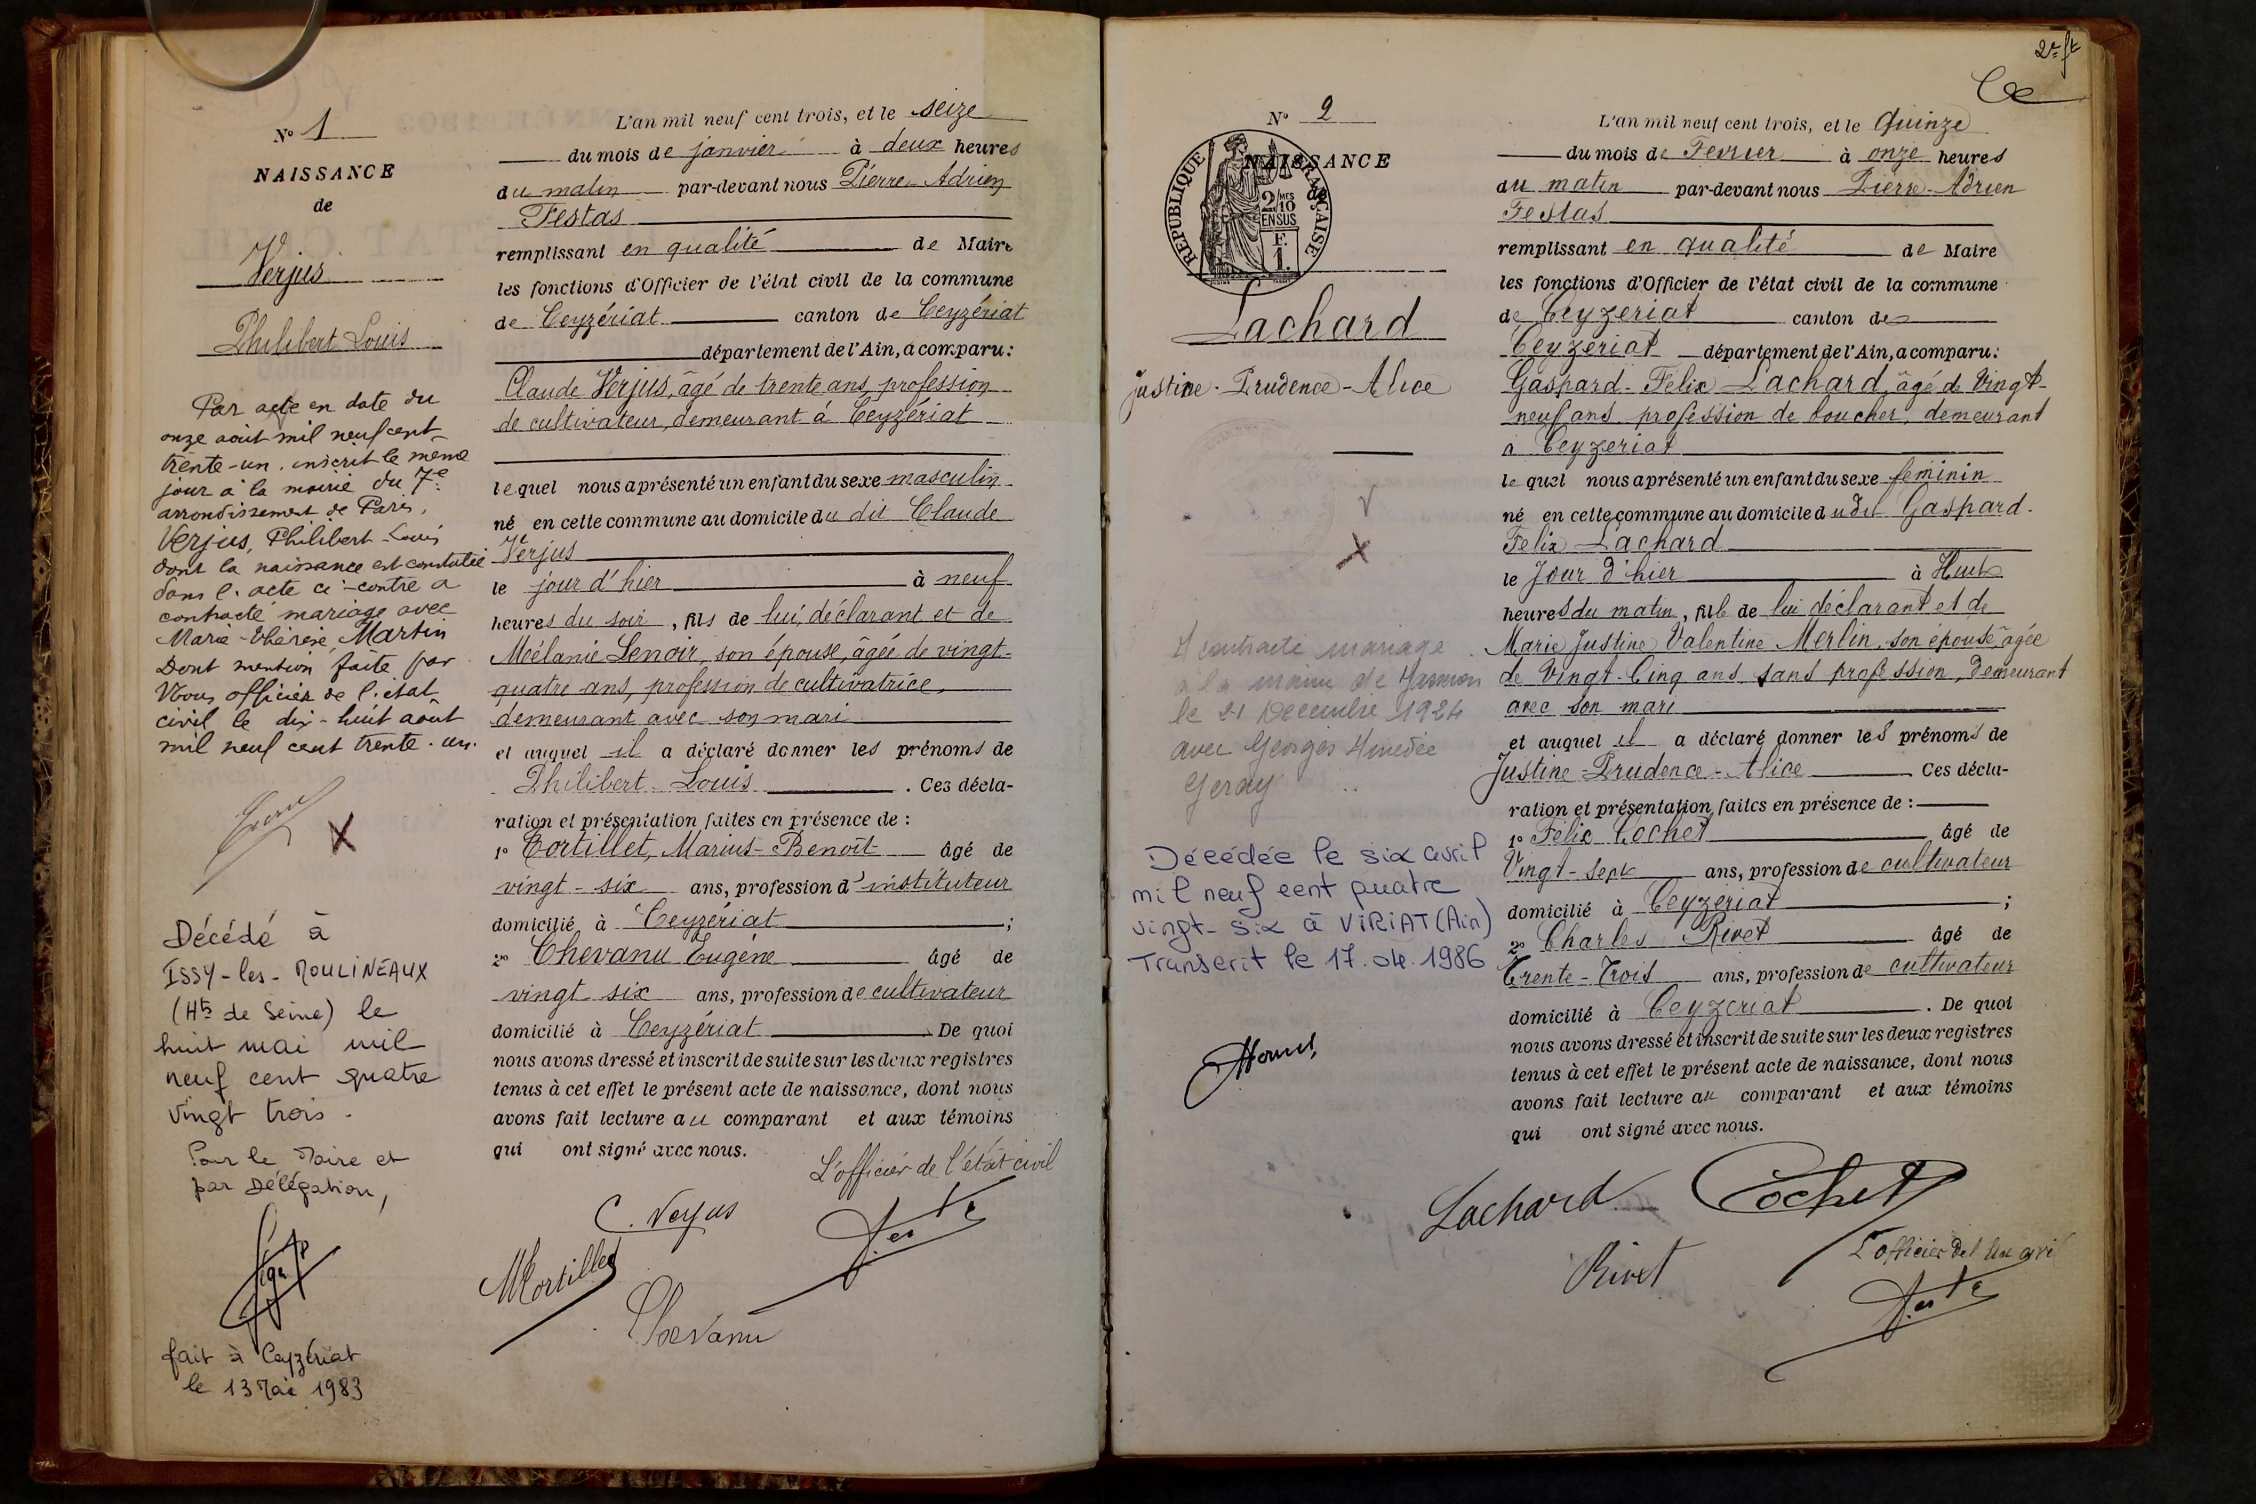 N° 1
NAISSANCE
de
Verjus
Philibert Louis
Par acte en date du
onze août mil neuf cent
trente-un, inscrit le même
jour à la mairie du 7e
arrondissement de Paris,
Verjus, Philibert-Louis
dont la naissance est constatée
dans l'acte ci-contre a
contracté mariage avec
Marie-Thérèse Martin
Dont mention faite par
Nous officier de l'état
civil le dix-huit août
mil neuf cent trente-un.
X
Décédé à
ISSY-les-MOULINEAUX
(Hts de Seine) le
huit mai mil
neuf cent quatre
vingt trois.
Pour le Maire et
par Délégation,
fait à Ceyzériat
le 13 Mai 1983
L'an mil neuf cent trois, et le seize
du mois de janvier à deux heures
du matin par-devant nous Pierre Adrien
Festas
remplissant en qualité de Maire
les fonctions d'Officier de l'état civil de la commune
de Ceyzériat canton de Ceyzériat
département de l'Ain, a comparu:
Claude Verjus, âgé de trente ans, profession
de cultivateur, demeurant à Ceyzériat
lequel nous a présenté un enfant du sexe masculin
né en cette commune au domicile du dit Claude
Verjus
le jour d'hier à neuf
heures du soir, fils de lui, déclarant et de
Mélanie Lenoir, son épouse, âgée de vingt-
quatre ans, profession de cultivatrice,
demeurant avec son mari
et auquel il a déclaré donner les prénoms de
Philibert-Louis. Ces décla-
ration et présentation faites en présence de :
1° Tortillet, Marius-Benoît âgé de
vingt-six ans, profession d'instituteur
domicilié à Ceyzériat ;
2° Chevanu Eugène âgé de
vingt-six ans, profession de cultivateur
domicilié à Ceyzériat. De quoi
nous avons dressé et inscrit de suite sur les deux registres
tenus à cet effet le présent acte de naissance, dont nous
avons fait lecture au comparant et aux témoins
qui ont signé avec nous.
L'officier de l'état civil
C. Verjus
MTortillet
Chevanu
2e ft
N° 2
NAISSANCE
de
RÉPUBLIQUE FRANÇAISE
2/10 MES
EN SUS
F.
1.
Lachard
Justine-Prudence-Alice
X
A contracté mariage
à la mairie de
le 21 Décembre 1924
avec Georges Amédée
Geray
Décédée le six avril
mil neuf cent quatre
vingt-six à VIRIAT (Ain)
Transcrit le 17.04.1986
L'an mil neuf cent trois, et le Quinze
du mois de Fevrier à onze heures
du matin par-devant nous Pierre-Adrien
Festas
remplissant en qualité de Maire
les fonctions d'Officier de l'état civil de la commune
de Ceyzeriat canton de
Ceyzeriat département de l'Ain, a comparu:
Gaspard-Felix Lachard, âgé de Vingt-
neuf ans profession de boucher, demeurant
à Ceyzeriat
lequel nous a présenté un enfant du sexe feminin
né en cette commune au domicile dudit Gaspard-
Felix Lachard
le Jour d'hier à Huit
heures du matin, fille de lui déclarant et de
Marie Justine Valentine Merlin, son épouse, âgée
de Vingt-Cinq ans, sans profession, demeurant
avec son mari
et auquel il a déclaré donner les prénoms de
Justine-Prudence-Alice. Ces décla-
ration et présentation faites en présence de :
1° Felix Cochet âgé de
Vingt-Sept ans, profession de cultivateur
domicilié à Ceyzeriat ;
2° Charles Rivet âgé de
Trente-Trois ans, profession de cultivateur
domicilié à Ceyzeriat. De quoi
nous avons dressé et inscrit de suite sur les deux registres
tenus à cet effet le présent acte de naissance, dont nous
avons fait lecture au comparant et aux témoins
qui ont signé avec nous.
Lachard Cochet
Rivet